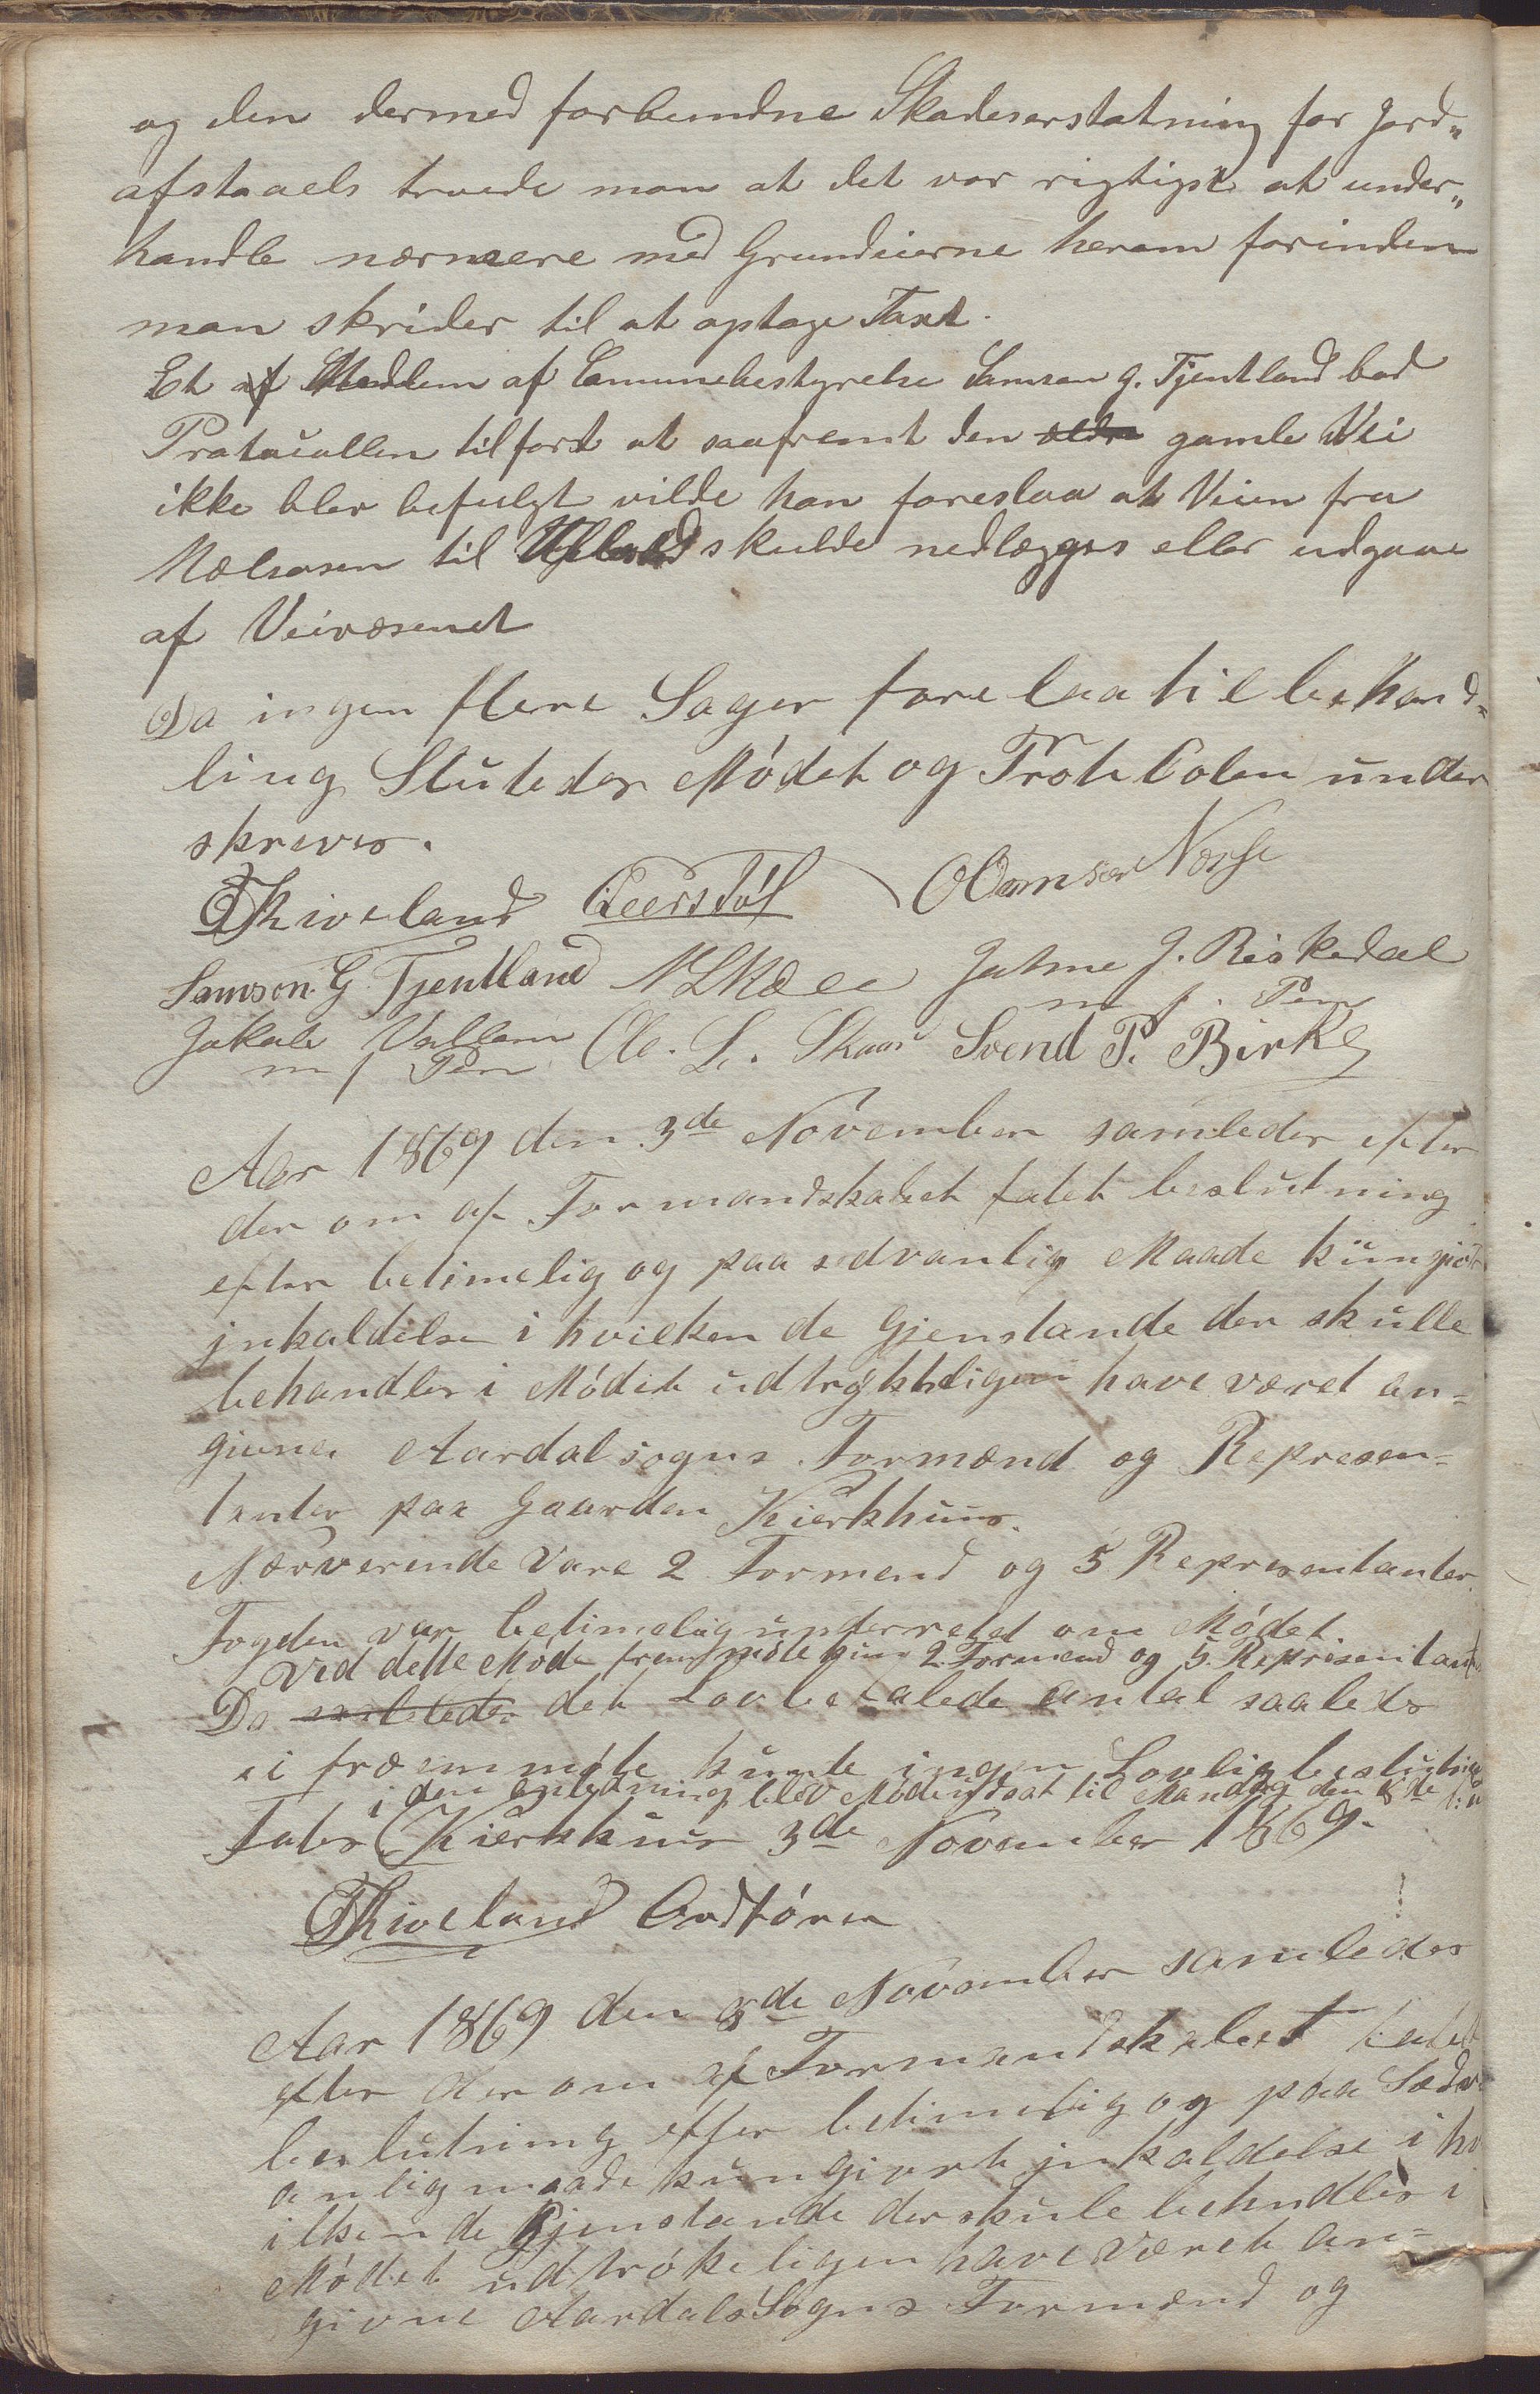 og den dermed forbundne Skadeserstatning for Jord„
afstaaels troede man at det var rigtigst at under„
handle nærmere med Grundeierne herom forinden
man skrider til at optage Taxt.
Et af Medlem af Comunebestyrelse Samson G. Tjentland bad
Protocollen tilført at saafremt den ældre gamle Vei
ikke blev befulgt vilde han foreslaa at Veien fra
til skulde nedlægges eller udgaae
af Veivæsenet
Da ingen flere Sager forelaa til behand=
ling Sluteder Módet og ProteColen under
skreves.
TThiveland Geersdól OOmnson Norse
Samson. G Tjentland N L Kdee Jatme J. Riskedal
m f. Pen
Jakob Vallem Ole. L. Skaar Svend P. Birke
m f Pen
Aar 1869 den 3de November samledes efter
der om af Formandskabet fatet beslutning
efter betimelig og paa sedvanlig Maade kungiort
jnkaldelse i hvilken de Gjenstande der skulle
behandles i Módet udtrykkeligen have været an=
givne. Aardalsogns Formænd og Represen=
tanter paa Gaarden Kierkhuus.
Nærverende Vare 2 Formend og 5 Representanter.
Fogden var betimelig underretet om Módet.
Ved dette Móde fremmóte kun 2 Formend og 5. Representant
Da saaledes det Lovbefalede antal saaledes
ei fræmmóte kunde ingen Lovlig beslutning
i den anledning blev Módet udsat til Mandag den 8de
Fates Kierkhuus 3de November 1869.
TThiveland Ordfórer
Aar 1869 den 8de November samledes
efter der om af Formandskabet fatet
beslutning efter betimelig og paa Sædv
anlig maade kungiort jnkaldelse i hv
ilken de Gjenstande der skule behndles i
Módet udtrókeligen have Været an=
givne Aardals Sogns Formænd og